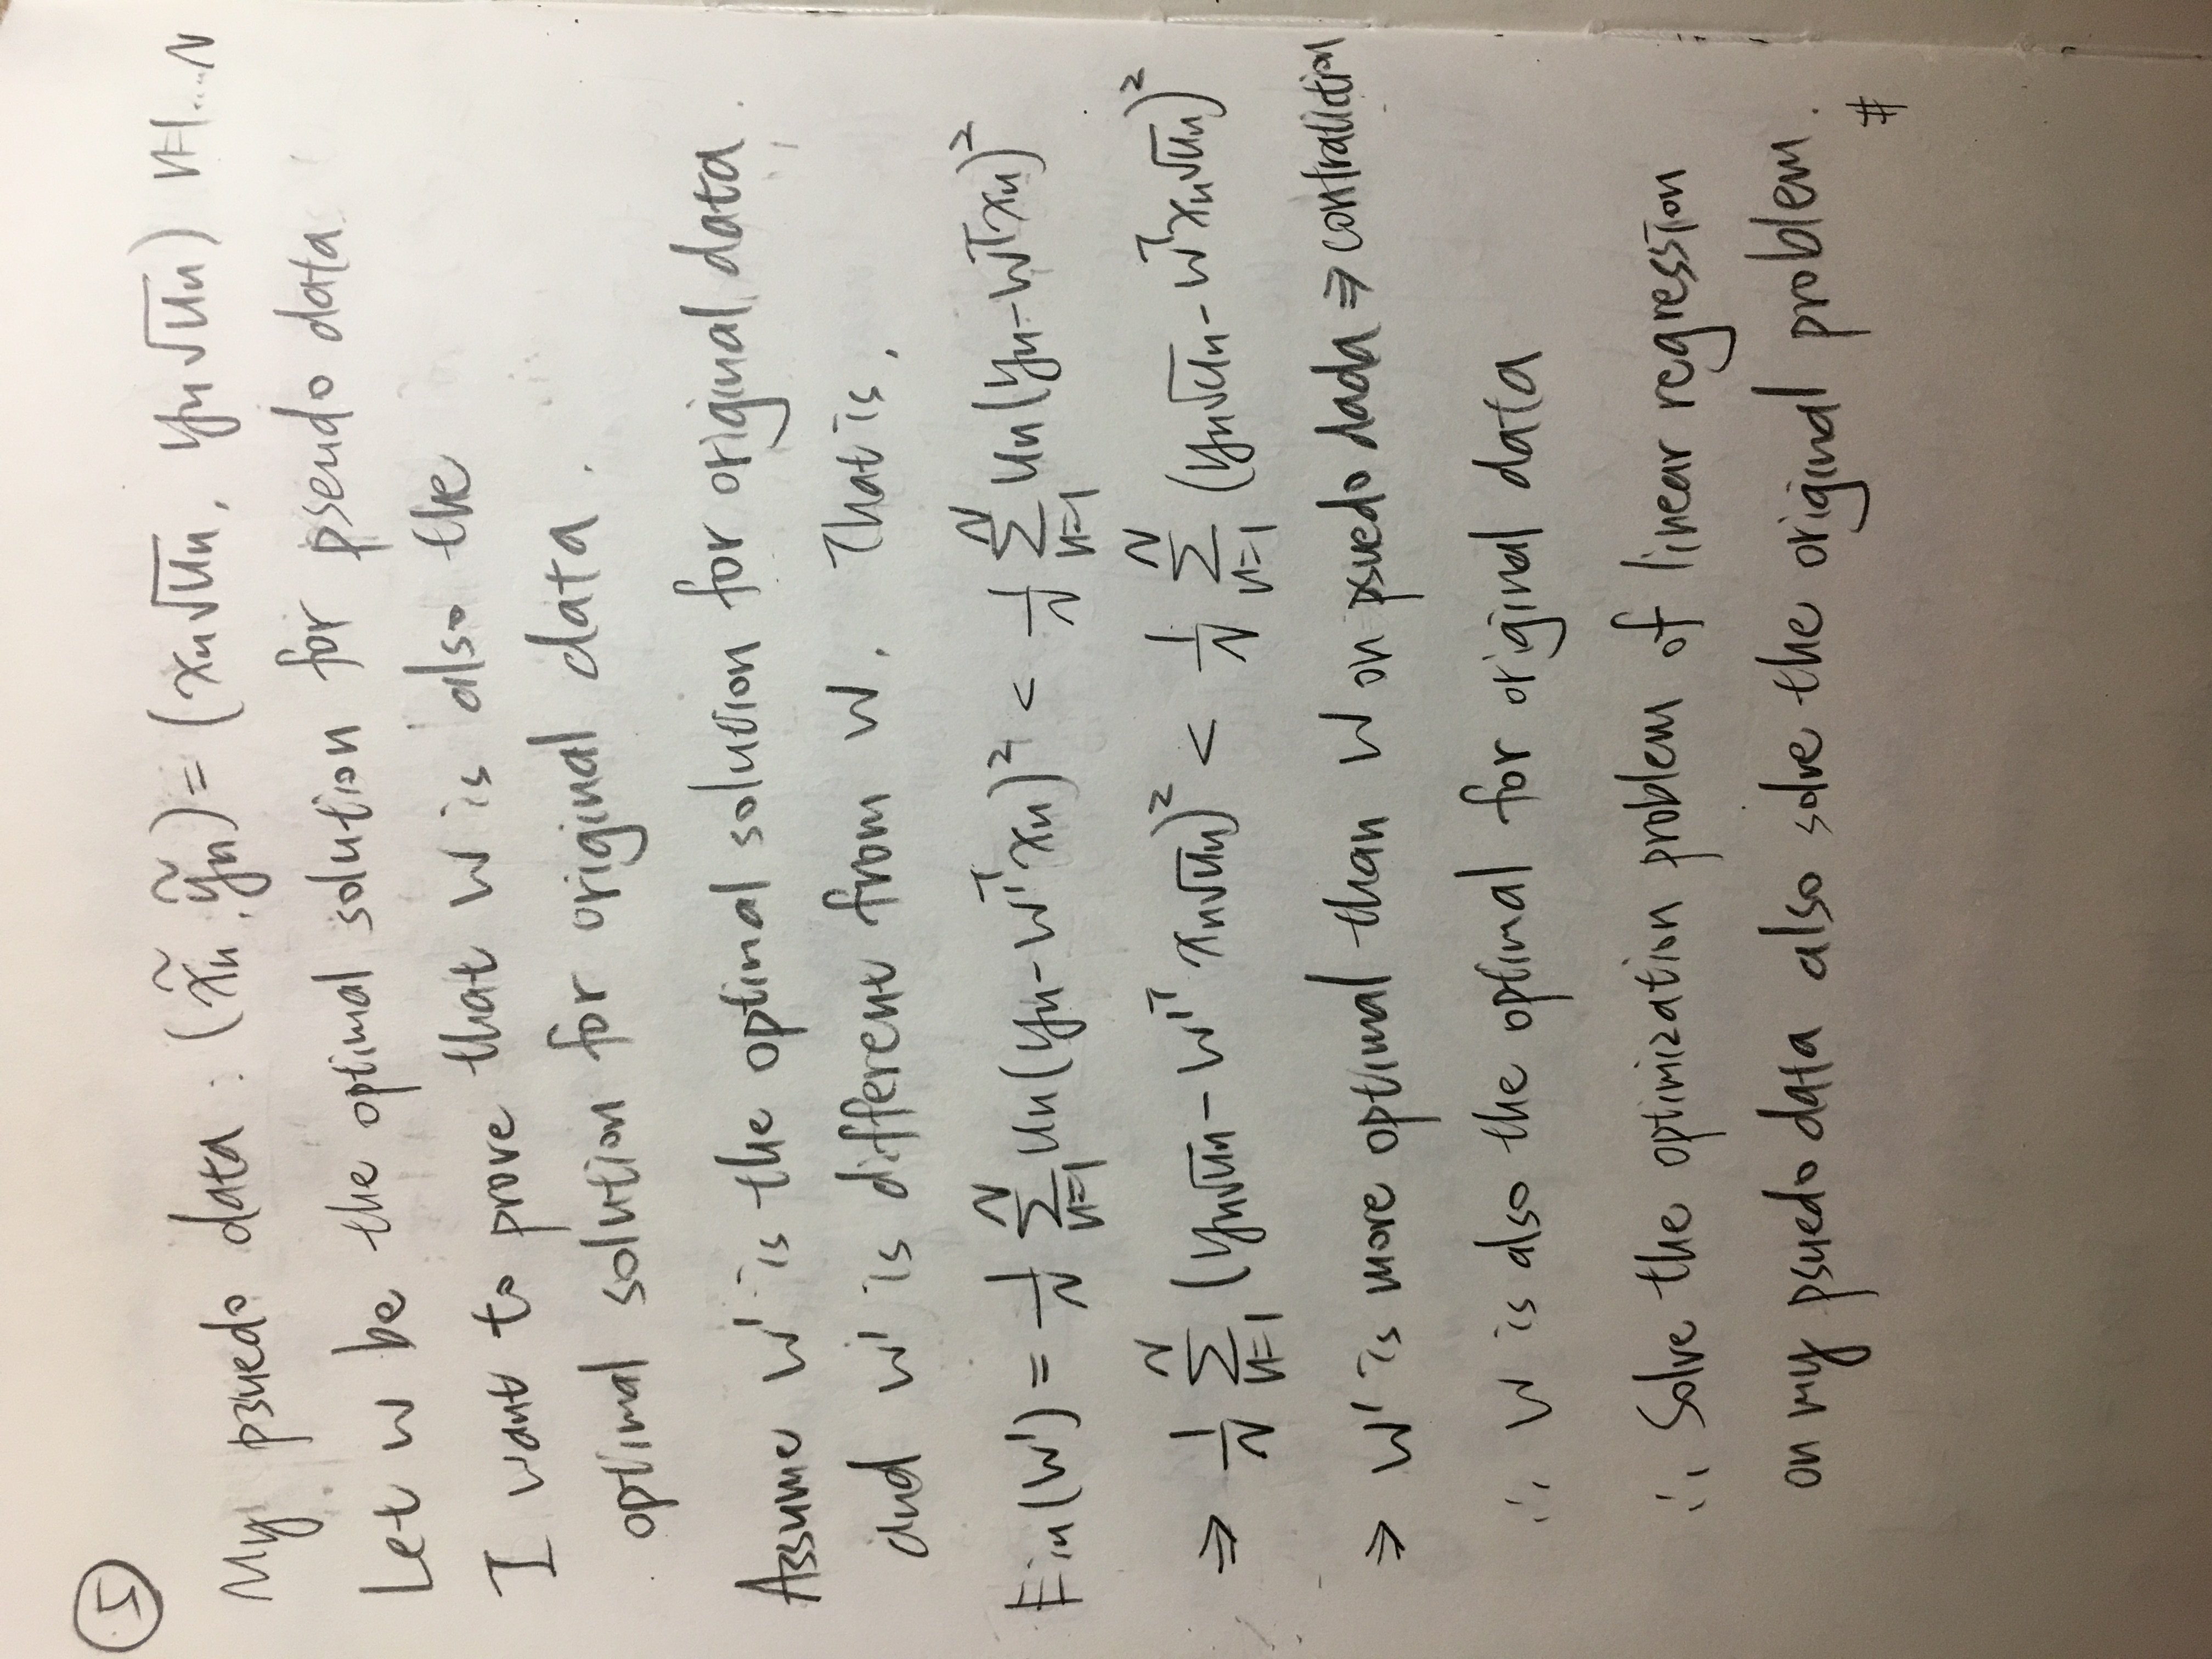 ⑤
My psuedo data : (x̃n, ỹn) = (xn√un, yn√un) n=1....N
Let w be the optimal solution for pseudo data
I want to prove that w is also the
optimal solution for original data.
Assume w' is the optimal solution for original data.
and w' is different from w. That is,
Ein(w') = 1/N Σ_{n=1}^{N} un(yn - w'ᵀxn)² < 1/N Σ_{n=1}^{N} un(yn - wᵀxn)²
⇒ 1/N Σ_{n=1}^{N} (yn√un - w'ᵀ xn√un)² < 1/N Σ_{n=1}^{N} (yn√un - wᵀxn√un)²
⇒ w' is more optimal than w on psuedo dada ⇒ contradiction
∴ w is also the optimal for original data
∴ Solve the optimization problem of linear regression
on my psuedo data also solve the original problem.
#